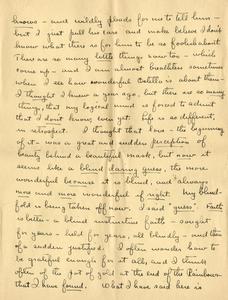 knows - and mildly pleads for me to tell him -
but I just pull his ears and make believe I don't
know what there is for him to be so foolish about
There are so many little things now too - which
come up - and I am almost breathless sometimes
when I see how wonderful Estella is about them -
I thought I knew a year ago, but there are so many
things, that my logical mind is forced to admit
that I don't know, even yet. Life is so different,
in retrospect. I thought that love - the beginning
of it - was a great and sudden perception of
beauty behind a beautiful mask, but now it
seems like a blind daring guess, the more
wonderful because it is blind, and always
more and more wonderful if right. My blind-
fold is being taken off now. I said "guess". Faith
is better - a blind instinctive faith - sought
for years - held for years, all blindly - and then
of a sudden justified. I often wonder how to
be grateful enough for it all, and I think
often of the pot of gold at the end of the Rainbow -
that I have found. What I have said here is